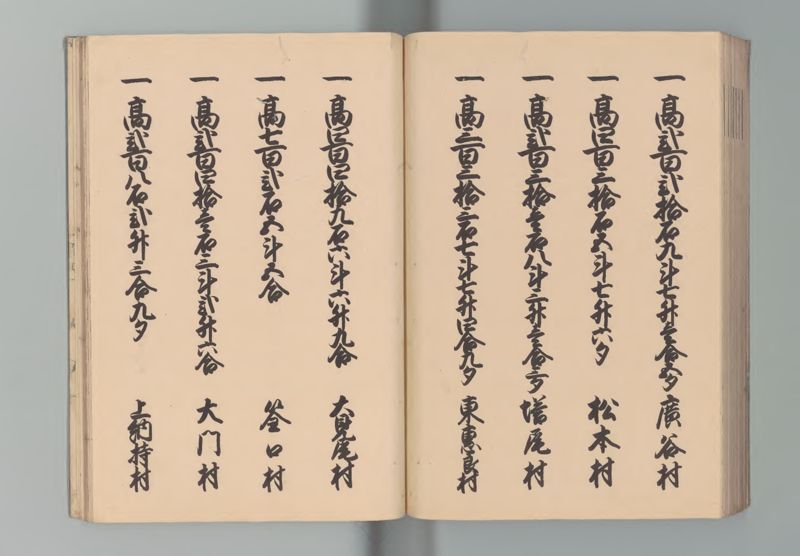 一高弐百弐拾石九斗七升壱合五夕 廣谷村
一高四百三拾石五斗七升六夕 松本村
一高弐百三拾壱石八斗三升壱合三夕 増尾村
一高三百三拾三石七斗七升四合九夕 東恵良村
一高四百四拾九石六斗六升九合 大見尾村
一高七百弐石五斗五合 釜口村
一高弐百四拾壱石三斗弐升六合 大門村
一高弐百八石弐升三合九夕 上納持村